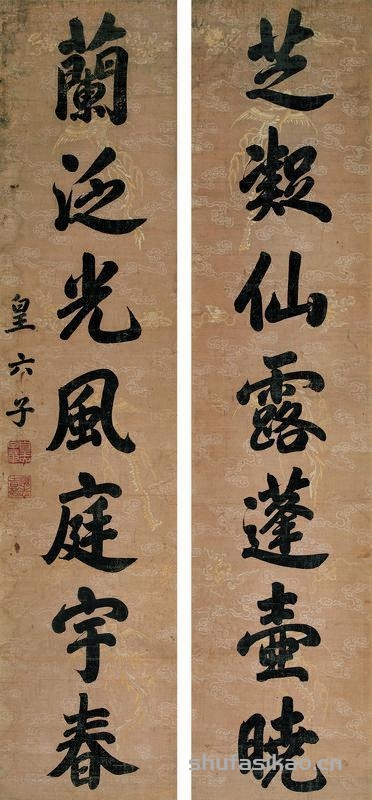 芝凝仙露蓬壺曉
蘭泛光風庭宇春
皇六子
shufasikao.cn